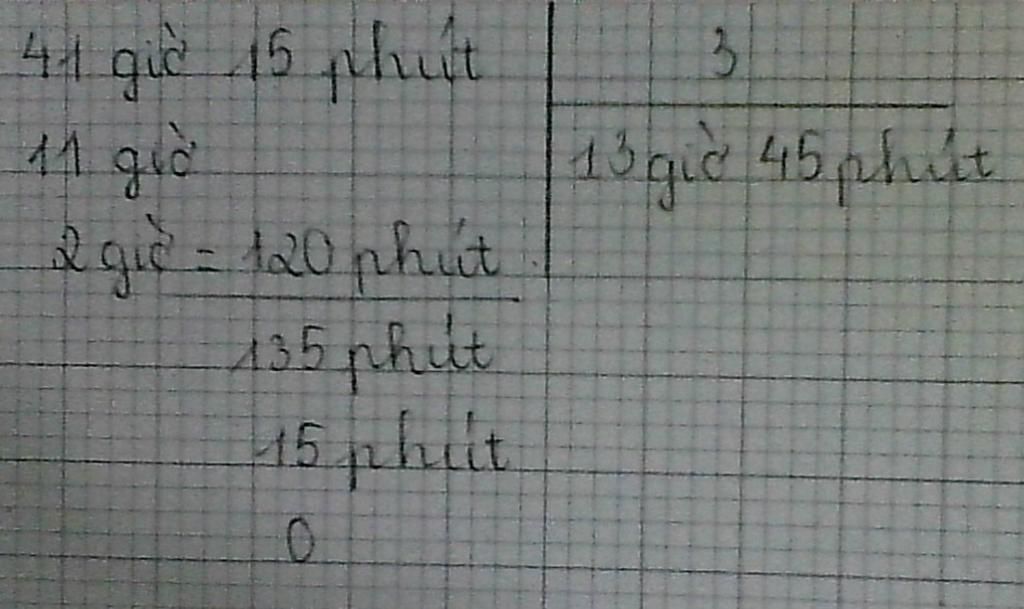 41 giờ 15 phút 3
11 giờ 13 giờ 45 phút
2 giờ = 120 phút
135 phút
15 phút
0